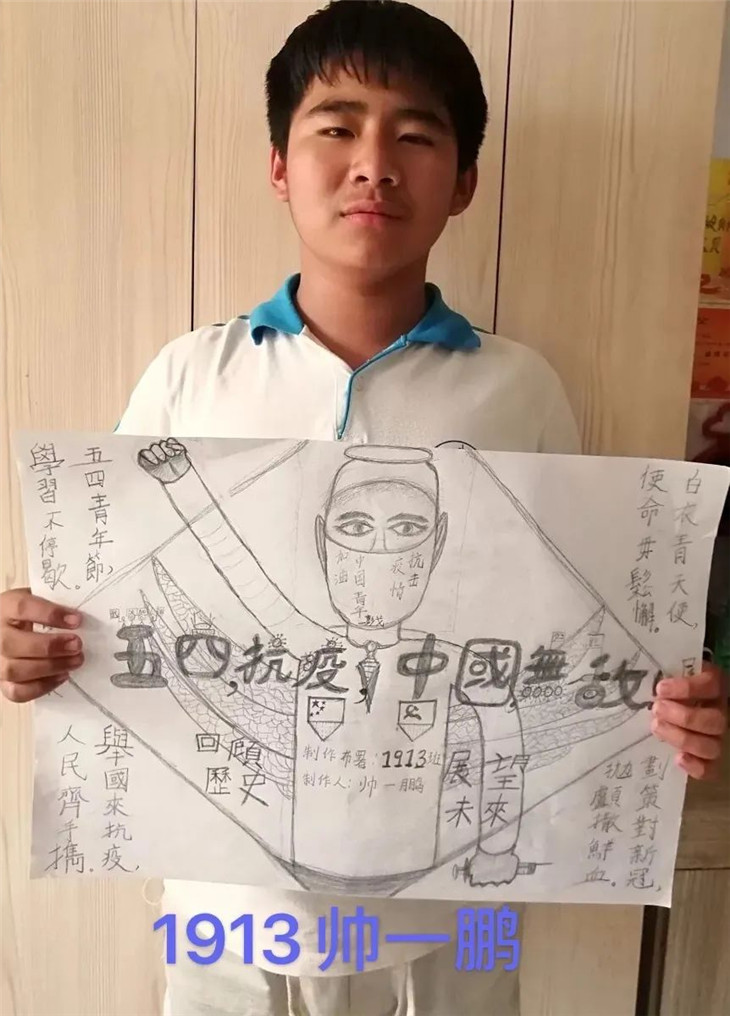 五四青年節，
學習不停歇。
白衣青天使，
使命毋鬆懈。
抗击
疫情
中国青年
加油
五四，抗疫，中國，無敌！
回顧
歷史
制作布署：1913班
制作人：帅一鹏
展望
未來
舉國來抗疫，
人民齊手攜.
劃策對新冠，
拋顱撒鮮血。
1913帅一鹏